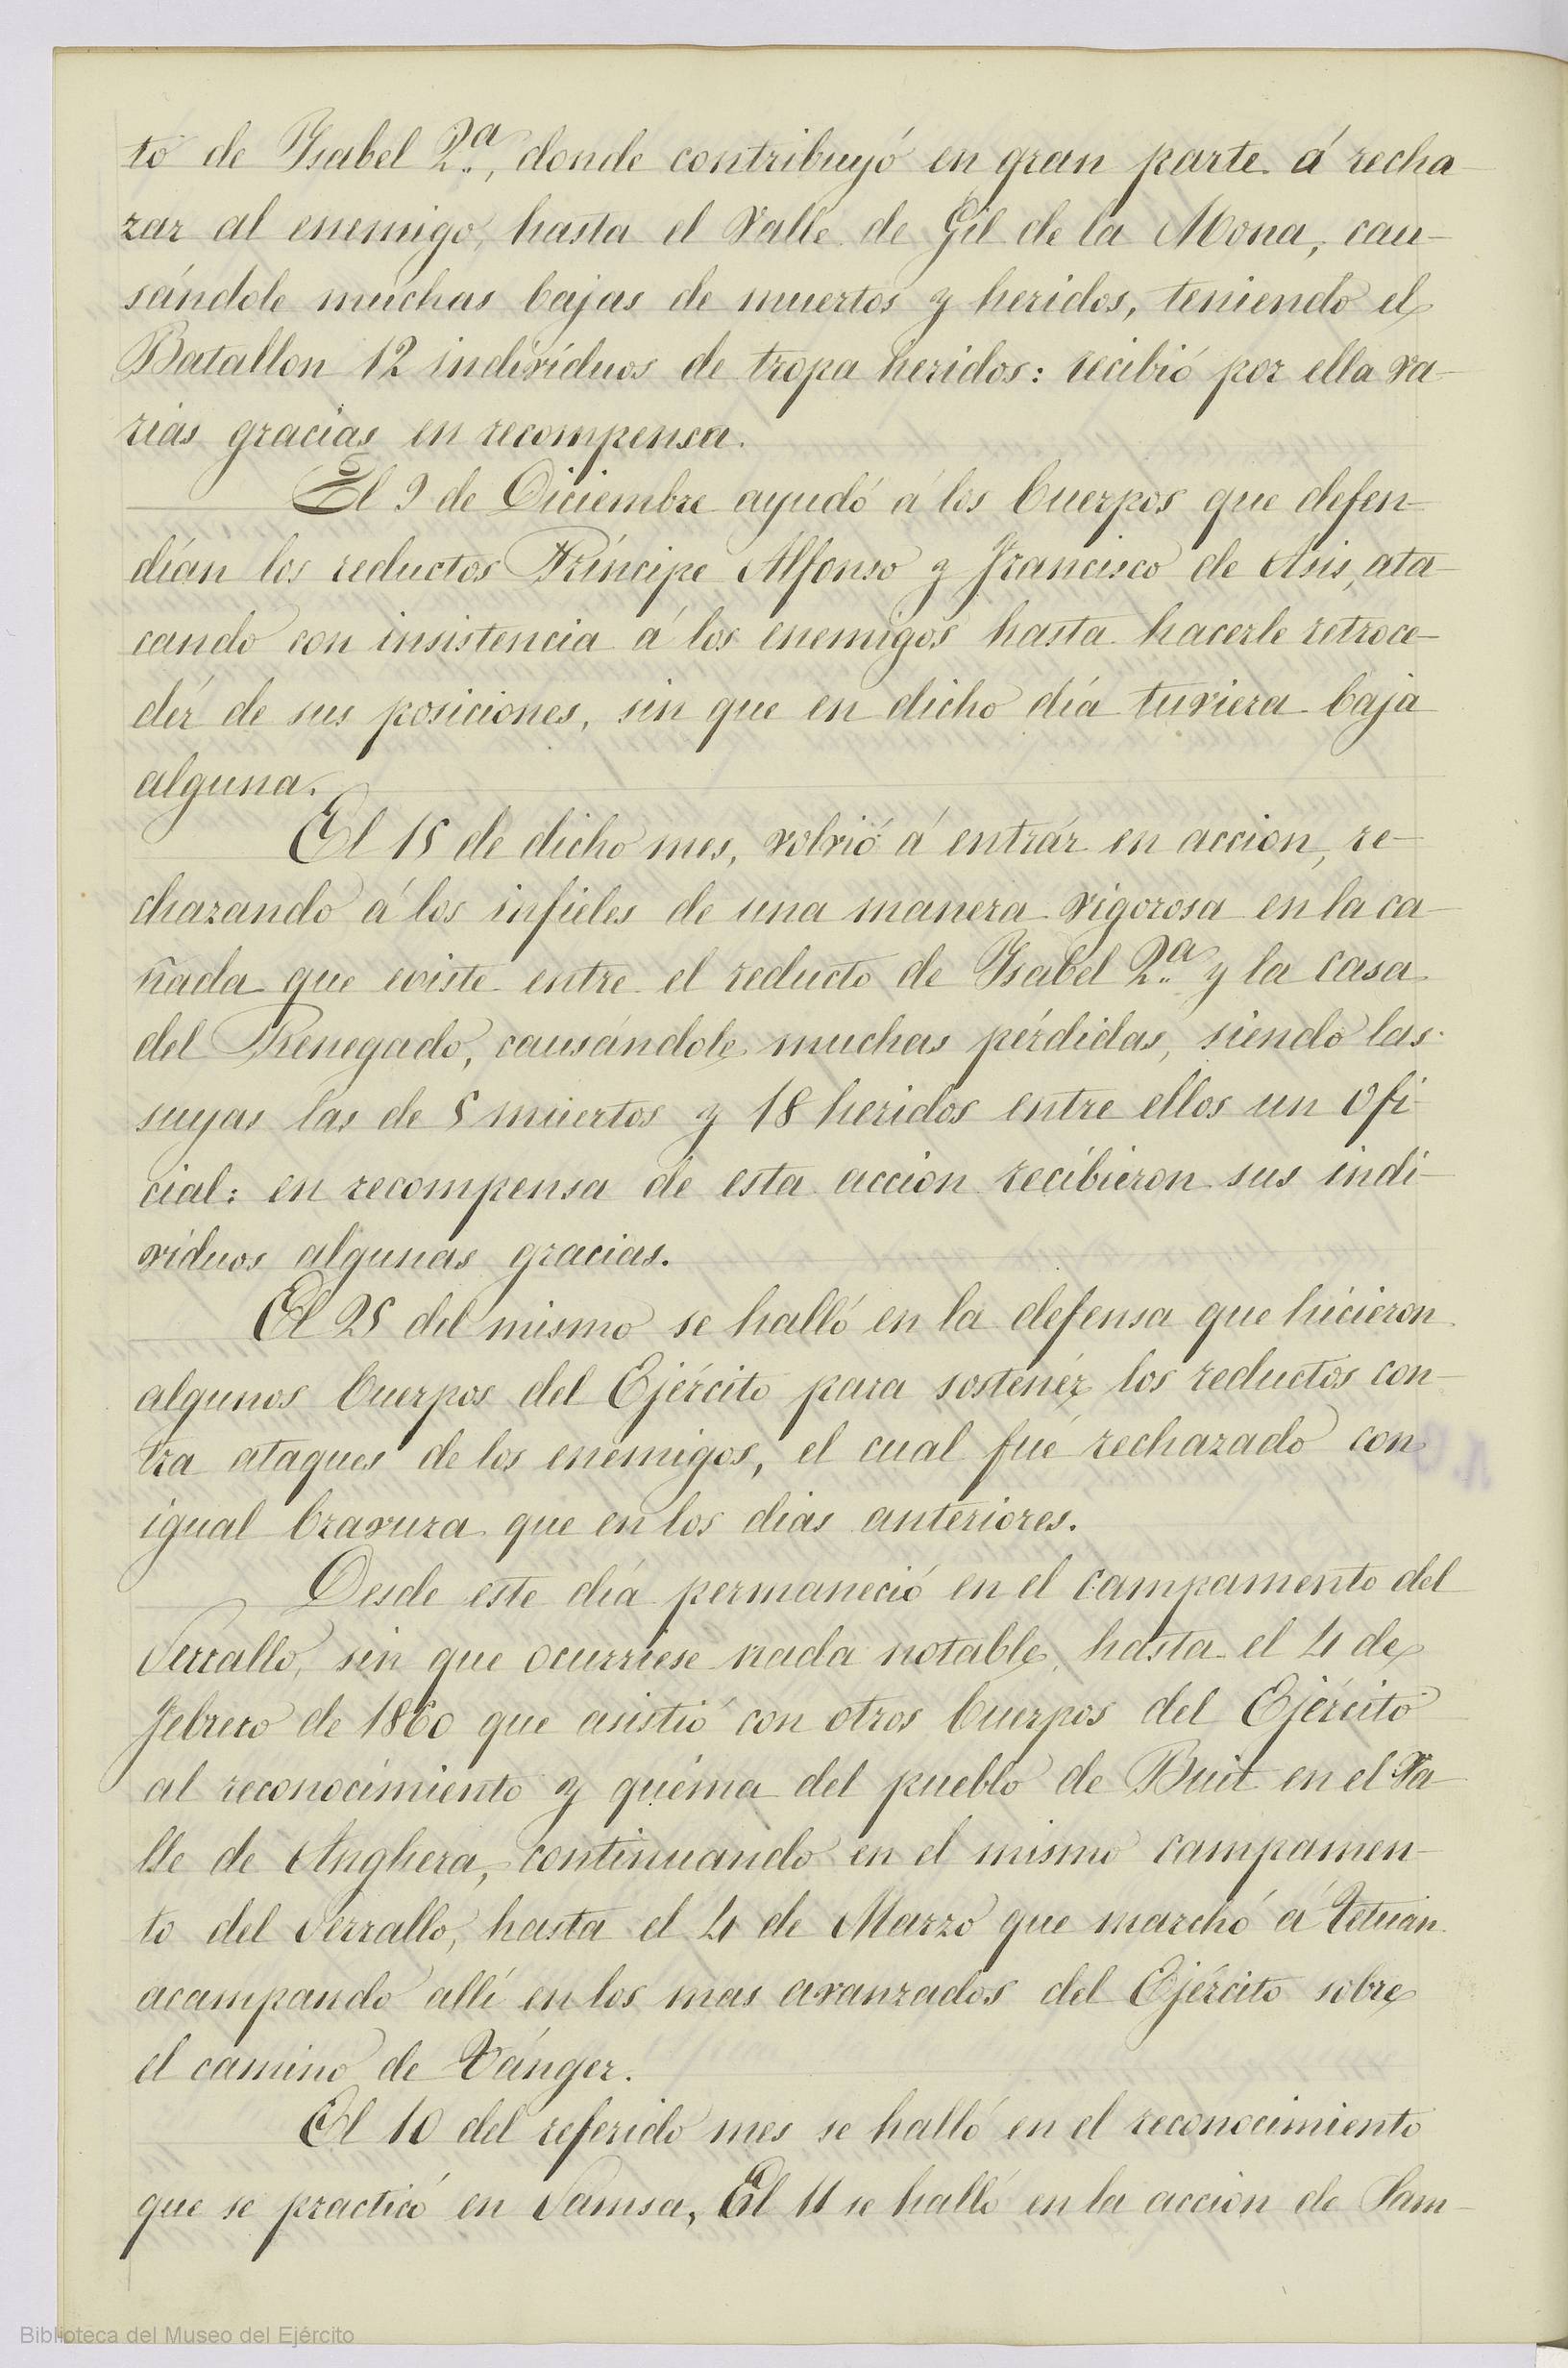 to de Isabel 2.ª, donde contribuyó en gran parte á recha-
zar al enemigo, hasta el Valle de Gil de la Mona, cau-
sándole muchas bajas de muertos y heridos, teniendo el
Batallon 12 indivíduos de tropa heridos: recibió por ella va-
rias gracias en recompensa.
El 9 de Diciembre ayudó á los Cuerpos que defen-
dían los reductos Príncipe Alfonso y Francisco de Asis, ata-
cando con insistencia á los enemigos hasta hacerle retroce-
dér de sus posiciones, sin que en dicho día tuviera baja
alguna.
El 15 de dicho mes, volvió á entrár en accion, re-
chazando á los infieles de una manera vigorosa en la ca-
ñada que existe entre el reducto de Isabel 2.ª y la casa
del Renegado, causándole muchas pérdidas, siendo las
suyas las de 5 muertos y 18 heridos entre ellos un Ofi-
cial: en recompensa de esta accion recibieron sus indi-
viduos algunas gracias.
El 25 del mismo se halló en la defensa que hicieron
algunos Cuerpos del Ejército para sostenér los reductos con-
tra ataques de los enemigos, el cual fué rechazado con
igual bravura que en los dias anteriores.
Desde este día permaneció en el campamento del
Serrallo, sin que ocurriese nada notable, hasta el 4 de
Febrero de 1860 que asistió con otros Cuerpos del Ejército
al reconocimiento y quema del pueblo de Buit en el Va-
lle de Anghera, continuando en el mismo campamen-
to del Serrallo, hasta el 4 de Marzo que marchó á Tetuán
acampando allí en los mas avanzados del Ejército sobre
el camino de Tánger.
El 10 del referido mes se halló en el reconocimiento
que se practicó en Samsa, El 11 se halló en la accion de Sam-
Biblioteca del Museo del Ejército